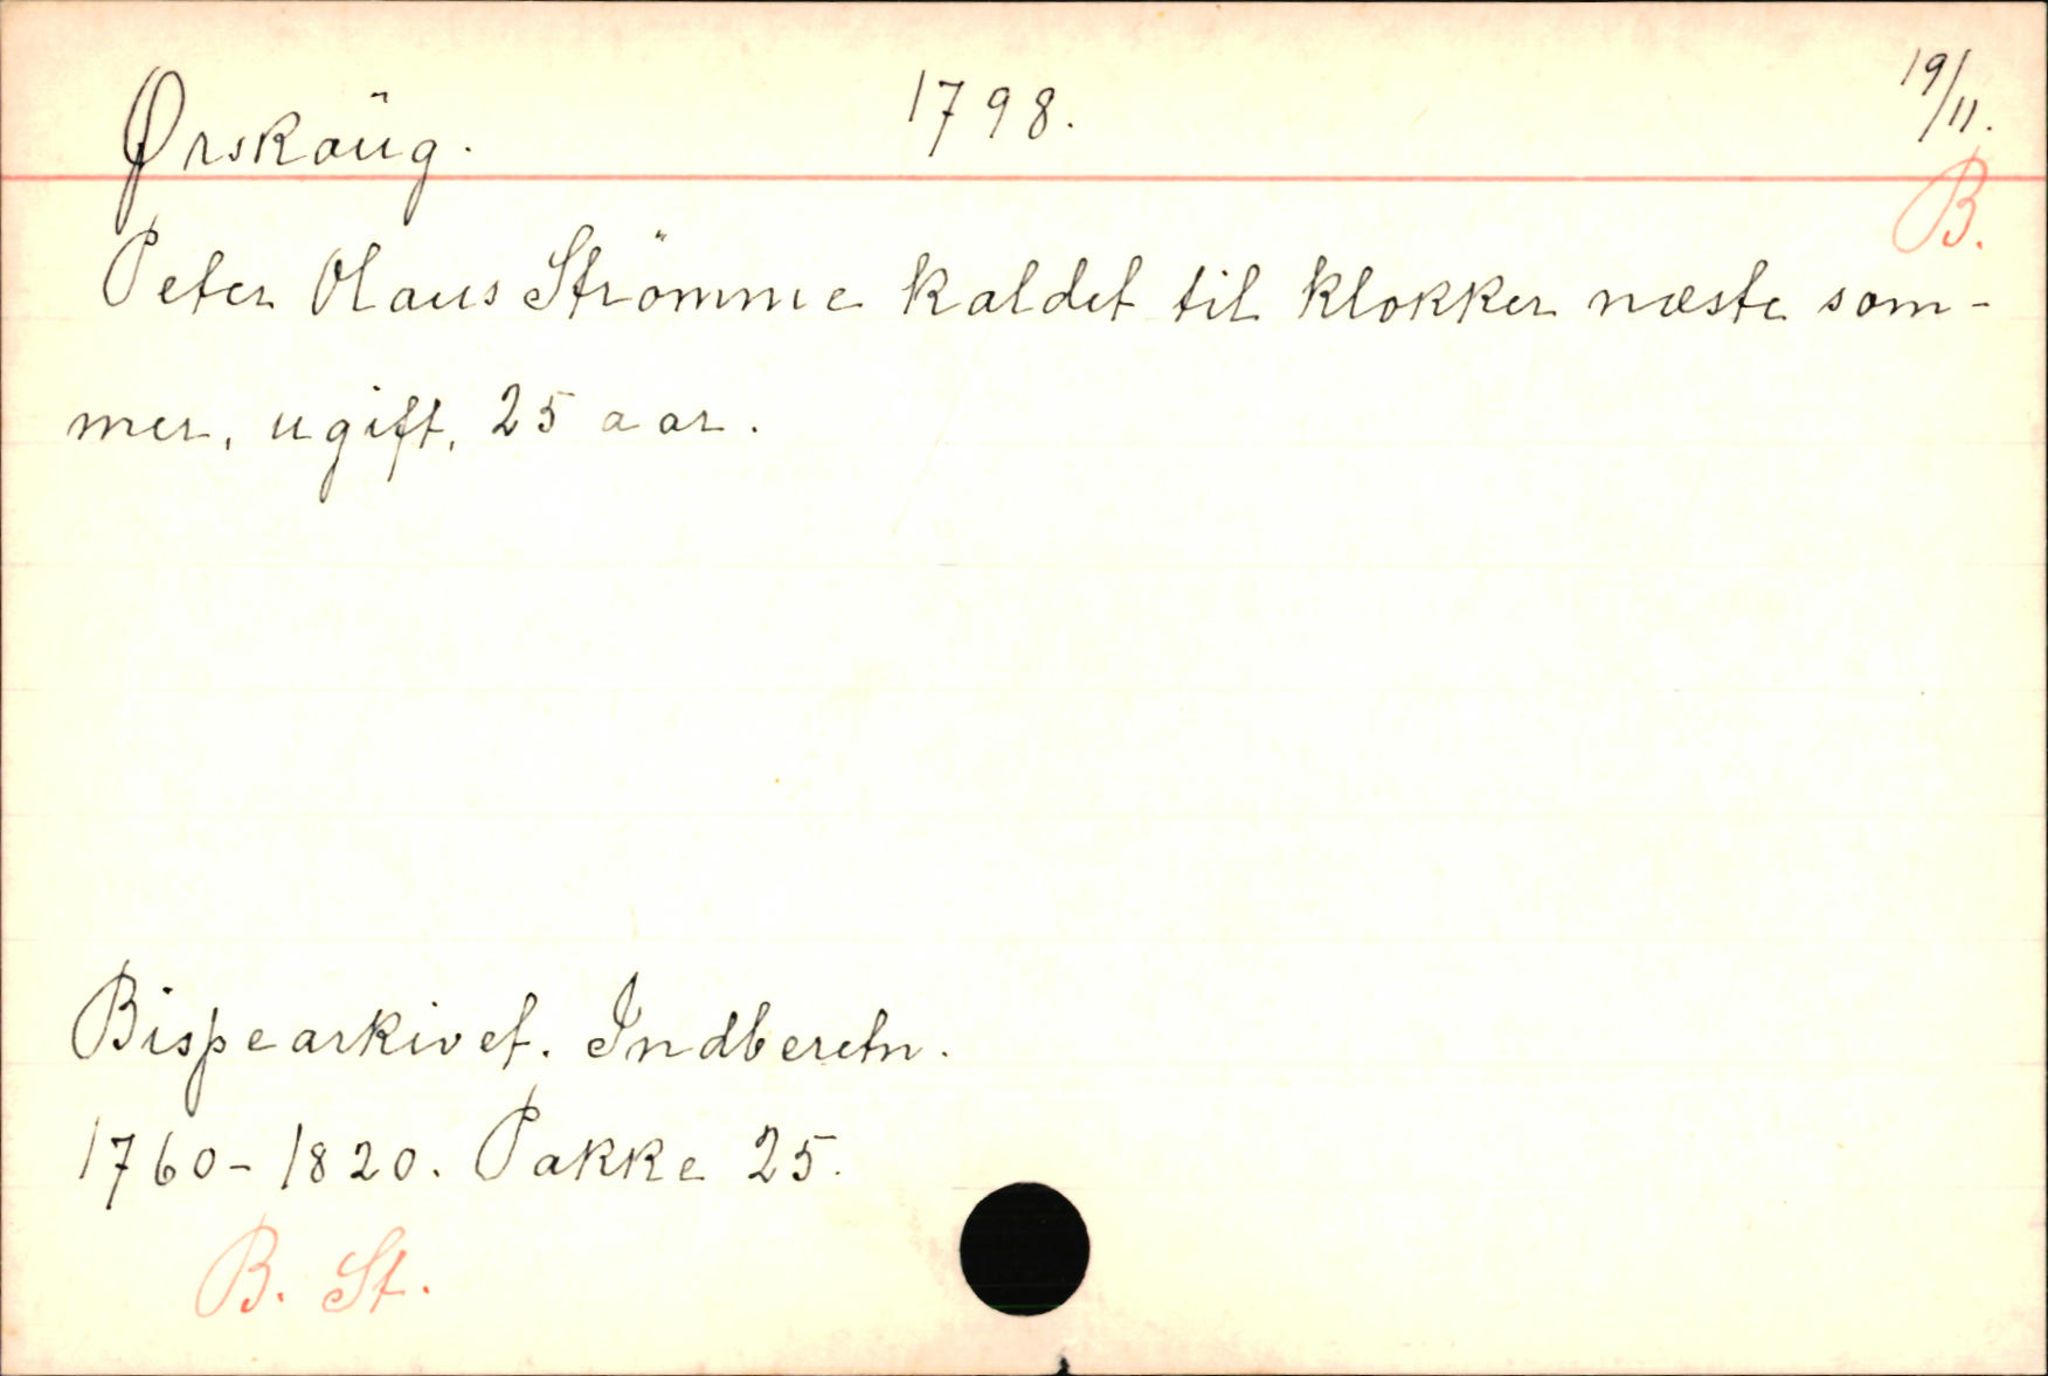 Ørskoüg. 1798. 19/11.
B.
Peter Olaus Strömme kaldet til klokker næste som-
mer, ugift, 25 aar.
Bispearkivet. Indberetn.
1760-1820. Pakke 25.
B. St.